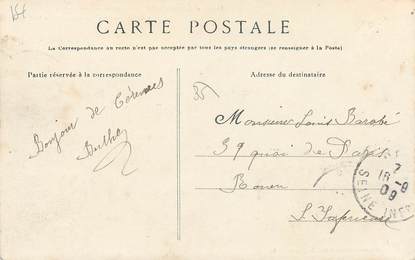 CARTE POSTALE
La Correspondance au recto n'est pas acceptée par tous les pays étrangers (se renseigner à la Poste)
Partie réservée à la correspondance
Adresse du destinataire
35
Bonjour de
Monsieur Louis
39 quai de Paris
Rouen
S. Inférieure
7
18-9
09
SEINE INFRE